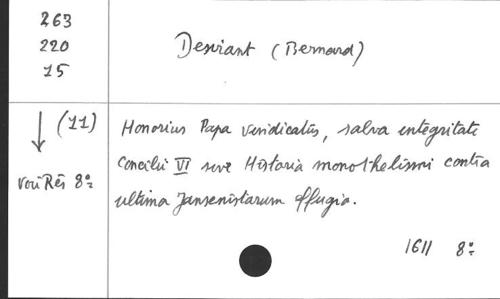 263
220
15
Desirant (Bernard)
↓ (11)
voir Rés 8º
Honorius Papa vindicatus, salva integritate
Concilii VI sive Historia monothelismi contra
ultima Jansenistarum effugia.
1611 8º